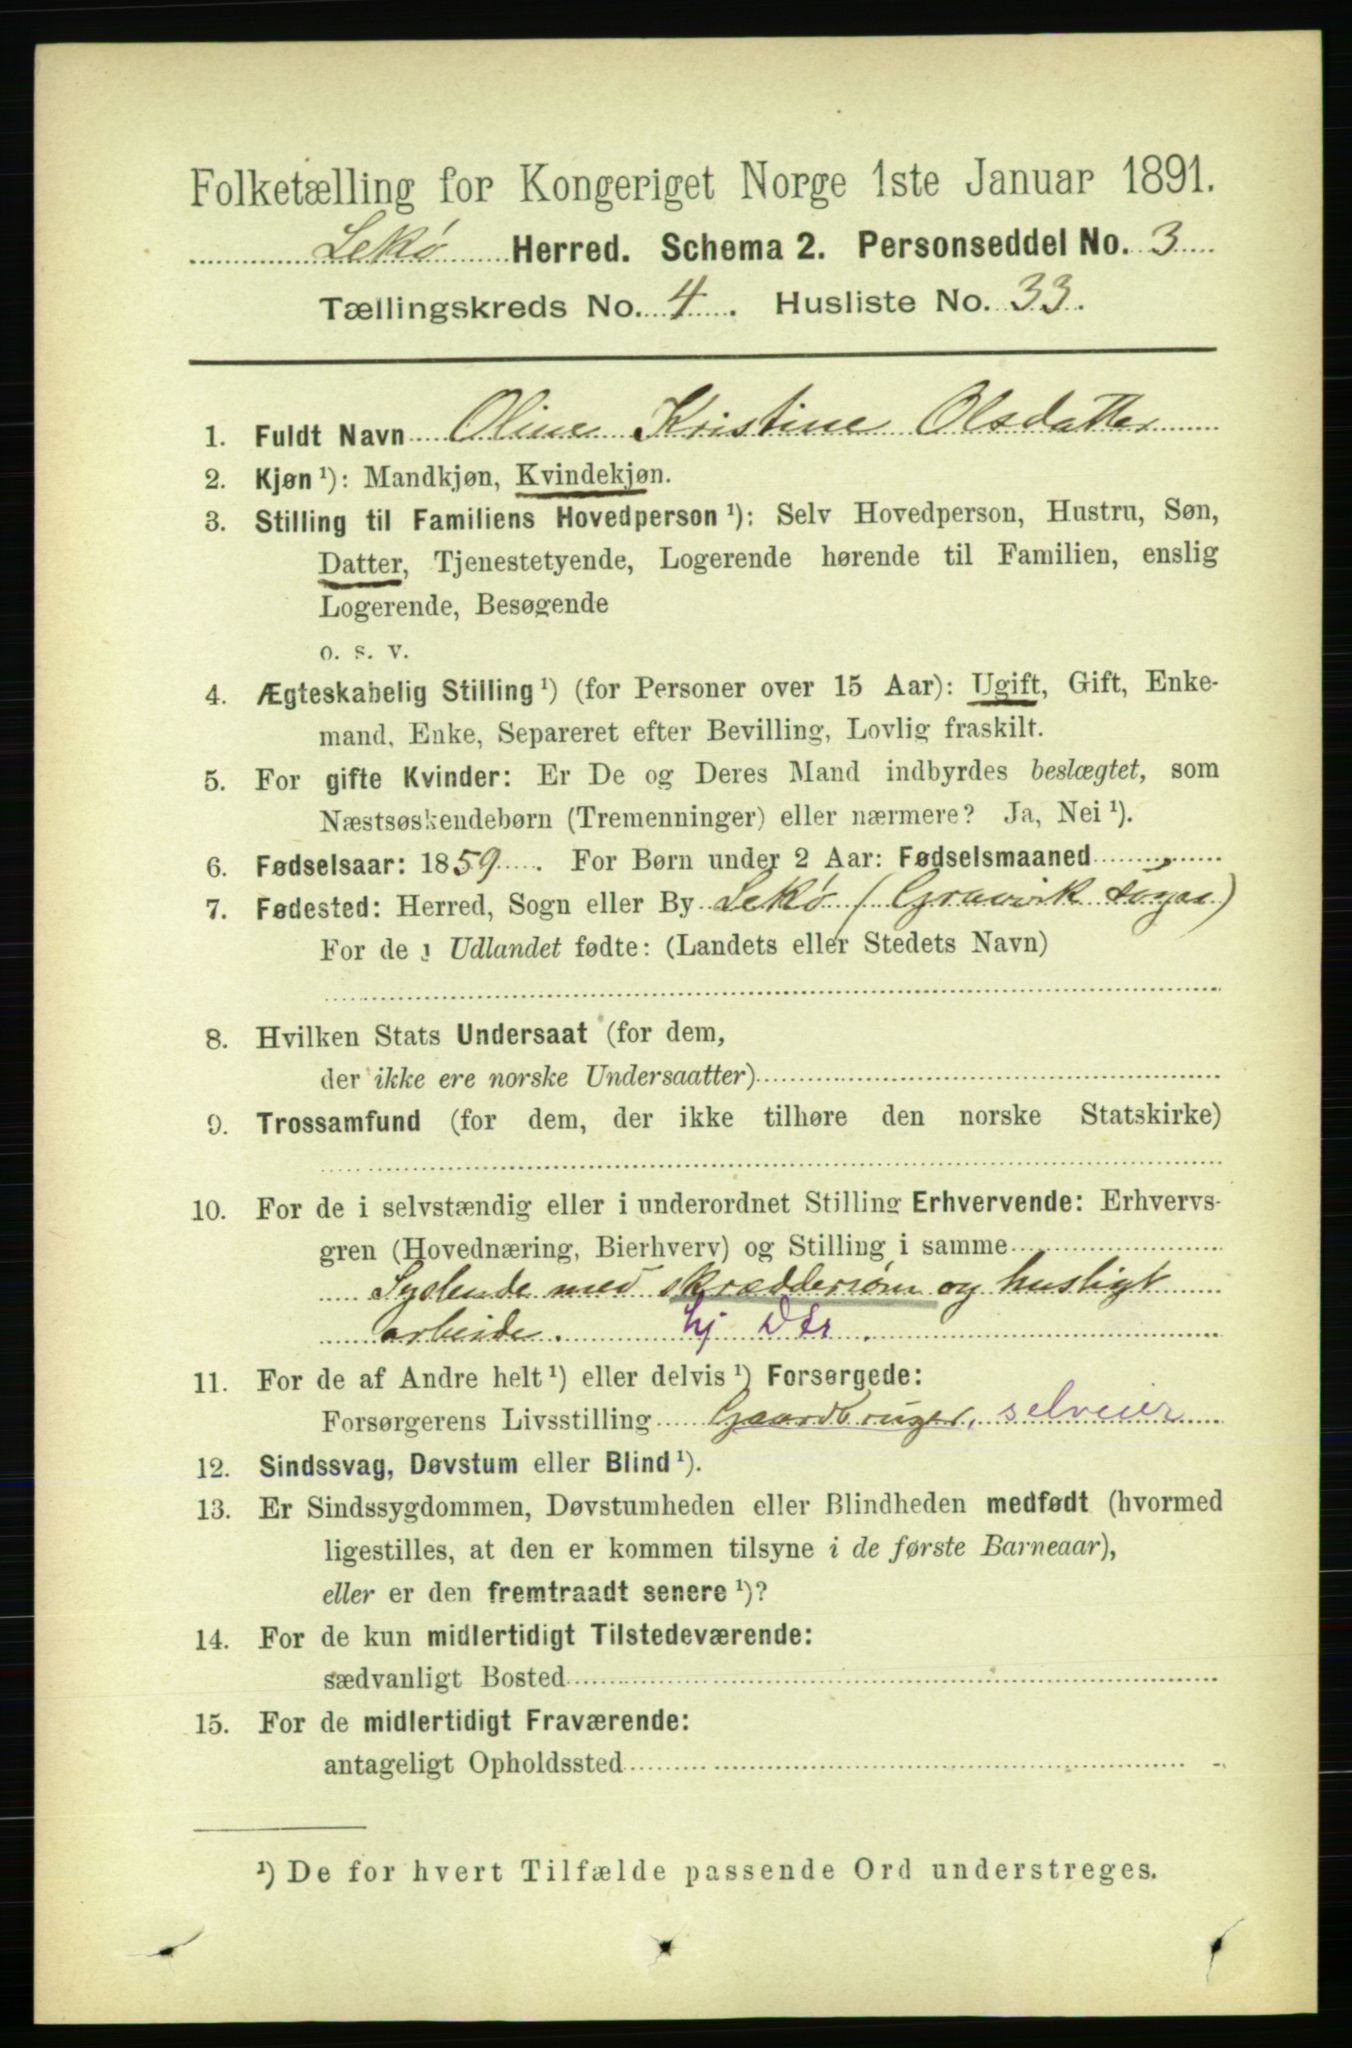 Folketælling for Kongeriget Norge 1ste Januar 1891.
Lekø Herred. Schema 2. Personseddel No. 3
Tællingskreds No. 4. Husliste No. 33.
1. Fuldt Navn Oline Kristine Olsdatter
2. Kjøn ¹): Mandkjøn, Kvindekjøn.
3. Stilling til Familiens Hovedperson ¹): Selv Hovedperson, Hustru, Søn,
Datter, Tjenestetyende, Logerende hørende til Familien, enslig
Logerende, Besøgende
o. s. v.
4. Ægteskabelig Stilling ¹) (for Personer over 15 Aar): Ugift, Gift, Enke-
mand, Enke, Separeret efter Bevilling, Lovlig fraskilt.
5. For gifte Kvinder: Er De og Deres Mand indbyrdes beslægtet, som
Næstsøskendebørn (Tremenninger) eller nærmere? Ja, Nei ¹).
6. Fødselsaar: 1859. For Børn under 2 Aar: Fødselsmaaned
7. Fødested: Herred, Sogn eller By Lekø (Gravvik sogn)
For de i Udlandet fødte: (Landets eller Stedets Navn)
8. Hvilken Stats Undersaat (for dem,
der ikke ere norske Undersaatter)
9. Trossamfund (for dem, der ikke tilhøre den norske Statskirke)
10. For de i selvstændig eller i underordnet Stilling Erhvervende: Erhvervs-
gren (Hovednæring, Bierhverv) og Stilling i samme
med skræddersøm og husligt
arbeide. hj Dtr.
11. For de af Andre helt ¹) eller delvis ¹) Forsørgede:
Forsørgerens Livsstilling Gaardbruger, selveier
12. Sindssvag, Døvstum eller Blind ¹).
13. Er Sindssygdommen, Døvstumheden eller Blindheden medfødt (hvormed
ligestilles, at den er kommen tilsyne i de første Barneaar),
eller er den fremtraadt senere ¹)?
14. For de kun midlertidigt Tilstedeværende:
sædvanligt Bosted
15. For de midlertidigt Fraværende:
antageligt Opholdssted
¹) De for hvert Tilfælde passende Ord understreges.